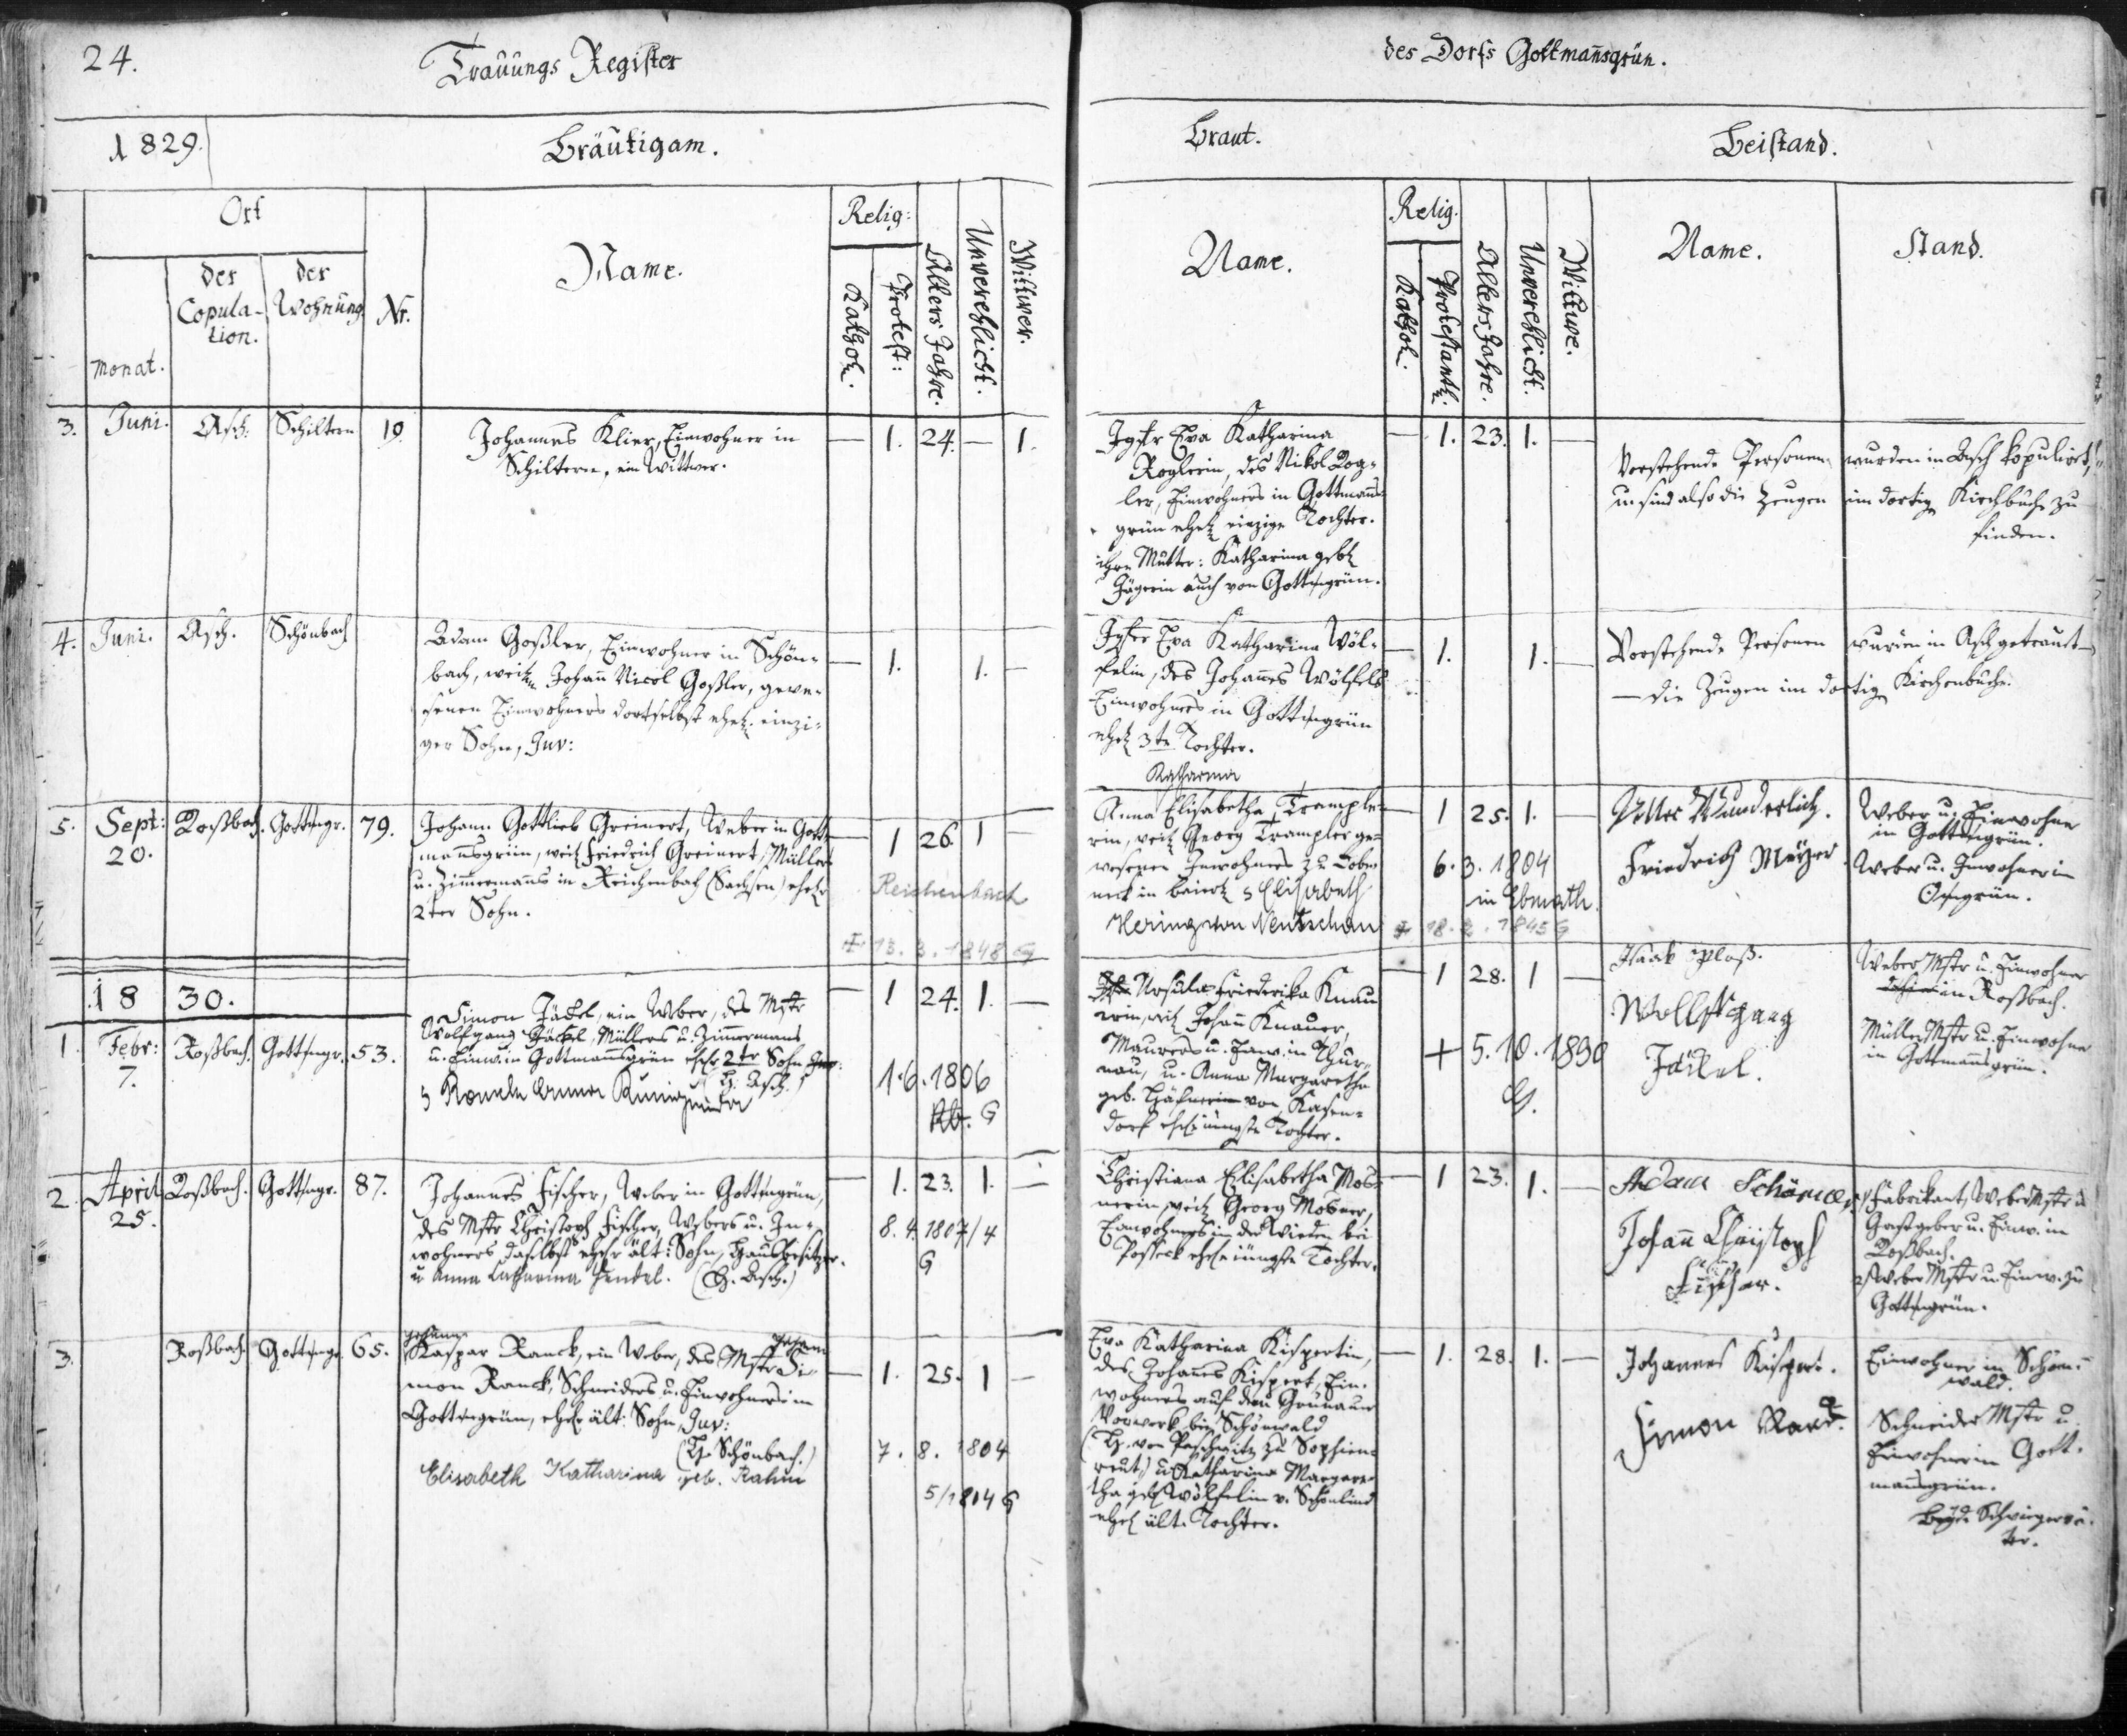 24.
Trauungs Register
des Dorfs Gottmañsgrün.
1829.
Bräutigam.
Braut.
Beistand.
Ort
Monat.
der Copula-
tion.
der
Wohnung
Nr.
Name.
Relig:
Kathol.
Protest:
Alters Jahre.
Unverehlicht.
Wittwer.
Name.
Relig.
Kathol.
Protestantl.
Alters Jahre.
Unverehlicht.
Wittwe.
Name.
Stand.
3. Juni. Asch. Schiltern 19.
Johannes Klier, Einwohner in
Schiltern, ein Wittwer.
— 1. 24. — 1.
Jgfr Eva Katharina
Roglerin, des Nikol Rog-
ler, Einwohners in Gottmañs-
grün ehel einzige Tochter.
ihre Mutter: Katharina gebl
Jägerin auch von Gottmgrün.
— 1. 23. 1. —
Vorstehende Personen wurden in Asch kopulirt,
u. sind also die Zeugen im dortig Kirchbuch zu
finden.
4. Juni. Asch. Schönbach
Adam Goßler, Einwohner in Schön-
bach, weil. Johañ Nicol Goßler, gewe-
senen Einwohners dortselbst ehel. einzi-
ger Sohn, Juv:
— 1. 1. —
Jgfr Eva Katharina Wöl-
felin, des Johañes Wölfels
Einwohners in Gottmgrün
ehel 3te Tochter.
— 1. 1. —
Vorstehende Personen wurden in Asch getraut —
— die Zeugen im dortig Kirchenbuche.
5. Sept: 20. Roßbach. Gottmgr. 79.
Johann Gottlieb Greinert, Weber in Gott-
mañsgrün, weil Friedrich Greinert, Müllers
u. Zimmermañs in Reichenbach (Sachsen) ehel
2ter Sohn.
— 1 26. 1
Reichenbach
+ 13. 3. 1848 G
Katharina
Anna Elisabetha Trample-
rin, weil Georg Trampler ge-
wesenen Inwohners zu
Elisabeth
Hering von Nentschau
— 1 25. 1. —
6. 3. 1804
in Ebmath.
+ 18. 2. 1845 G
Peter Wunderlich.
Friedrich Meyer.
Weber u. Einwohner
in Gottmgrün.
Weber u. Inwohner in
1830.
1. Febr: 7. Roßbach. Gottmgr. 53.
Simon Jäckel, ein Weber, des Mstr
Wolfgang Jäckel, Müllers u. Zimmermans
u. Einw. in Gottmannsgrün ehel 2ter Sohn Juv:
(H. Asch.)
— 1 24. 1. —
1. 6. 1806
G
Ursula Friederika Knau
erin, weil Johañ Knauer,
Maurers u. Einw. in Thur-
nau, u. Anna Margaretha
geb. Häfnerin von Kasen-
dorf ehel jüngste Tochter.
— 1 28. 1 —
+ 5. 10. 1830
G.
Isaak Ploß.
Wollfgang
Jäckel.
Weber Mstr u. Einwohner
in Roßbach.
Müller Mstr u. Einwohner
in Gottmañsgrün.
2. April 25. Roßbach. Gottmgr. 87.
Johannes Fischer, Weber in Gottmgrün,
des Mstr Christoph Fischer, Webers u. In-
wohners daselbst ehel ält: Sohn, Hausbesitzer.
u Anna Catharina Hendel. (H. Asch.)
— 1. 23. 1. —
8. 4. 1807/4
G
Christiana Elisabetha Mos-
nerin, weil Georg Mosner,
Einwohners in der Wieden bei
Posseck ehel jüngste Tochter.
— 1 23. 1. —
Adam Schöner
Johañ Christoph
Fischer.
1) Fabrikant, Weber Mstr u
Gastgeber u. Einw. in
Roßbach.
2) Weber Mstr u. Einw. zu
Gottmgrün.
3. Roßbach. Gottmgr. 65.
Johann
Kaspar Ranck, ein Weber, des Mstr Si-
Johann
mon Ranck, Schneiders u. Einwohners in
Gottmgrün, ehel ält: Sohn, Juv:
(H. Schönbach.)
Elisabeth Katharina geb. Rahm
— 1. 25. 1 —
7. 8. 1804
5/1804 G
Eva Katharina Kispertin,
des Johañes Kispert, Ein-
wohners auf dem Grünauer
Vorwerk bei Schönwald
(H. von Paschwitz zu Sophien-
reut) u Katharina Margare-
tha geb Wölfelin v. Schönlind
ehel ält. Tochter.
— 1. 28. 1. —
Johannes Kispert.
Simon Ranck.
Einwohner in Schön-
wald.
Schneider Mstr u
Einwohner in Gott-
mañsgrün.
beyde Schwiegervä-
ter.